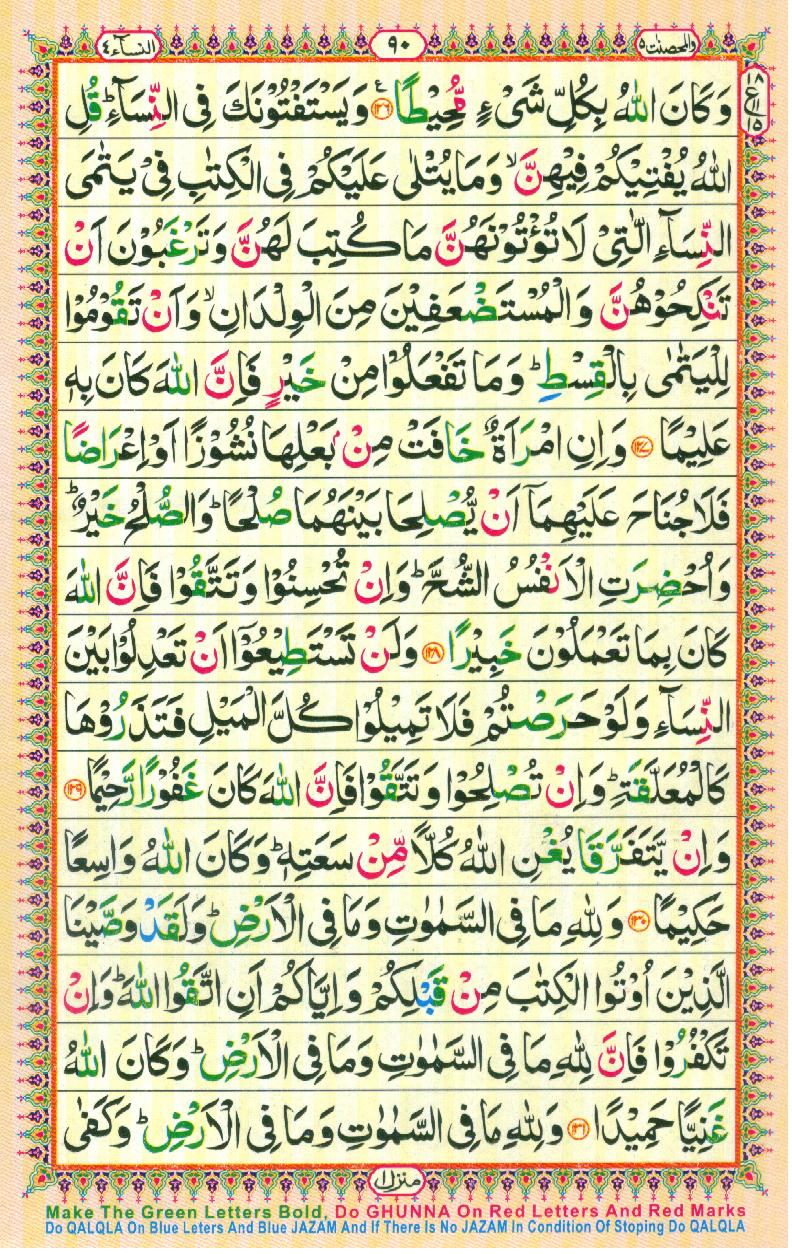 والمحصنت ۵
۹۰
النسآء ۴
۱۸
ع
۱۱
۱۵
وَكَانَ اللّٰهُ بِكُلِّ شَیْءٍ مُّحِیْطًا ﴿۱۲۶﴾ وَیَسْتَفْتُوْنَكَ فِی النِّسَآءِ ؕ قُلِ
اللّٰهُ یُفْتِیْكُمْ فِیْهِنَّ ۙ وَمَا یُتْلٰی عَلَیْكُمْ فِی الْكِتٰبِ فِیْ یَتٰمَی
النِّسَآءِ الّٰتِیْ لَا تُؤْتُوْنَهُنَّ مَا كُتِبَ لَهُنَّ وَتَرْغَبُوْنَ اَنْ
تَنْكِحُوْهُنَّ وَالْمُسْتَضْعَفِیْنَ مِنَ الْوِلْدَانِ ۙ وَاَنْ تَقُوْمُوْا
لِلْیَتٰمٰی بِالْقِسْطِ ؕ وَمَا تَفْعَلُوْا مِنْ خَیْرٍ فَاِنَّ اللّٰهَ كَانَ بِهٖ
عَلِیْمًا ﴿۱۲۷﴾ وَاِنِ امْرَاَةٌ خَافَتْ مِنْۢ بَعْلِهَا نُشُوْزًا اَوْ اِعْرَاضًا
فَلَا جُنَاحَ عَلَیْهِمَاۤ اَنْ یُّصْلِحَا بَیْنَهُمَا صُلْحًا ؕ وَالصُّلْحُ خَیْرٌ ؕ
وَاُحْضِرَتِ الْاَنْفُسُ الشُّحَّ ؕ وَاِنْ تُحْسِنُوْا وَتَتَّقُوْا فَاِنَّ اللّٰهَ
كَانَ بِمَا تَعْمَلُوْنَ خَبِیْرًا ﴿۱۲۸﴾ وَلَنْ تَسْتَطِیْعُوْۤا اَنْ تَعْدِلُوْا بَیْنَ
النِّسَآءِ وَلَوْ حَرَصْتُمْ فَلَا تَمِیْلُوْا كُلَّ الْمَیْلِ فَتَذَرُوْهَا
كَالْمُعَلَّقَةِ ؕ وَاِنْ تُصْلِحُوْا وَتَتَّقُوْا فَاِنَّ اللّٰهَ كَانَ غَفُوْرًا رَّحِیْمًا ﴿۱۲۹﴾
وَاِنْ یَّتَفَرَّقَا یُغْنِ اللّٰهُ كُلًّا مِّنْ سَعَتِهٖ ؕ وَكَانَ اللّٰهُ وَاسِعًا
حَكِیْمًا ﴿۱۳۰﴾ وَلِلّٰهِ مَا فِی السَّمٰوٰتِ وَمَا فِی الْاَرْضِ ؕ وَلَقَدْ وَصَّیْنَا
الَّذِیْنَ اُوْتُوا الْكِتٰبَ مِنْ قَبْلِكُمْ وَاِیَّاكُمْ اَنِ اتَّقُوا اللّٰهَ ؕ وَاِنْ
تَكْفُرُوْا فَاِنَّ لِلّٰهِ مَا فِی السَّمٰوٰتِ وَمَا فِی الْاَرْضِ ؕ وَكَانَ اللّٰهُ
غَنِیًّا حَمِیْدًا ﴿۱۳۱﴾ وَلِلّٰهِ مَا فِی السَّمٰوٰتِ وَمَا فِی الْاَرْضِ ؕ وَكَفٰی
منزل ۱
Make The Green Letters Bold, Do GHUNNA On Red Letters And Red Marks
Do QALQLA On Blue Leters And Blue JAZAM And If There Is No JAZAM In Condition Of Stoping Do QALQLA